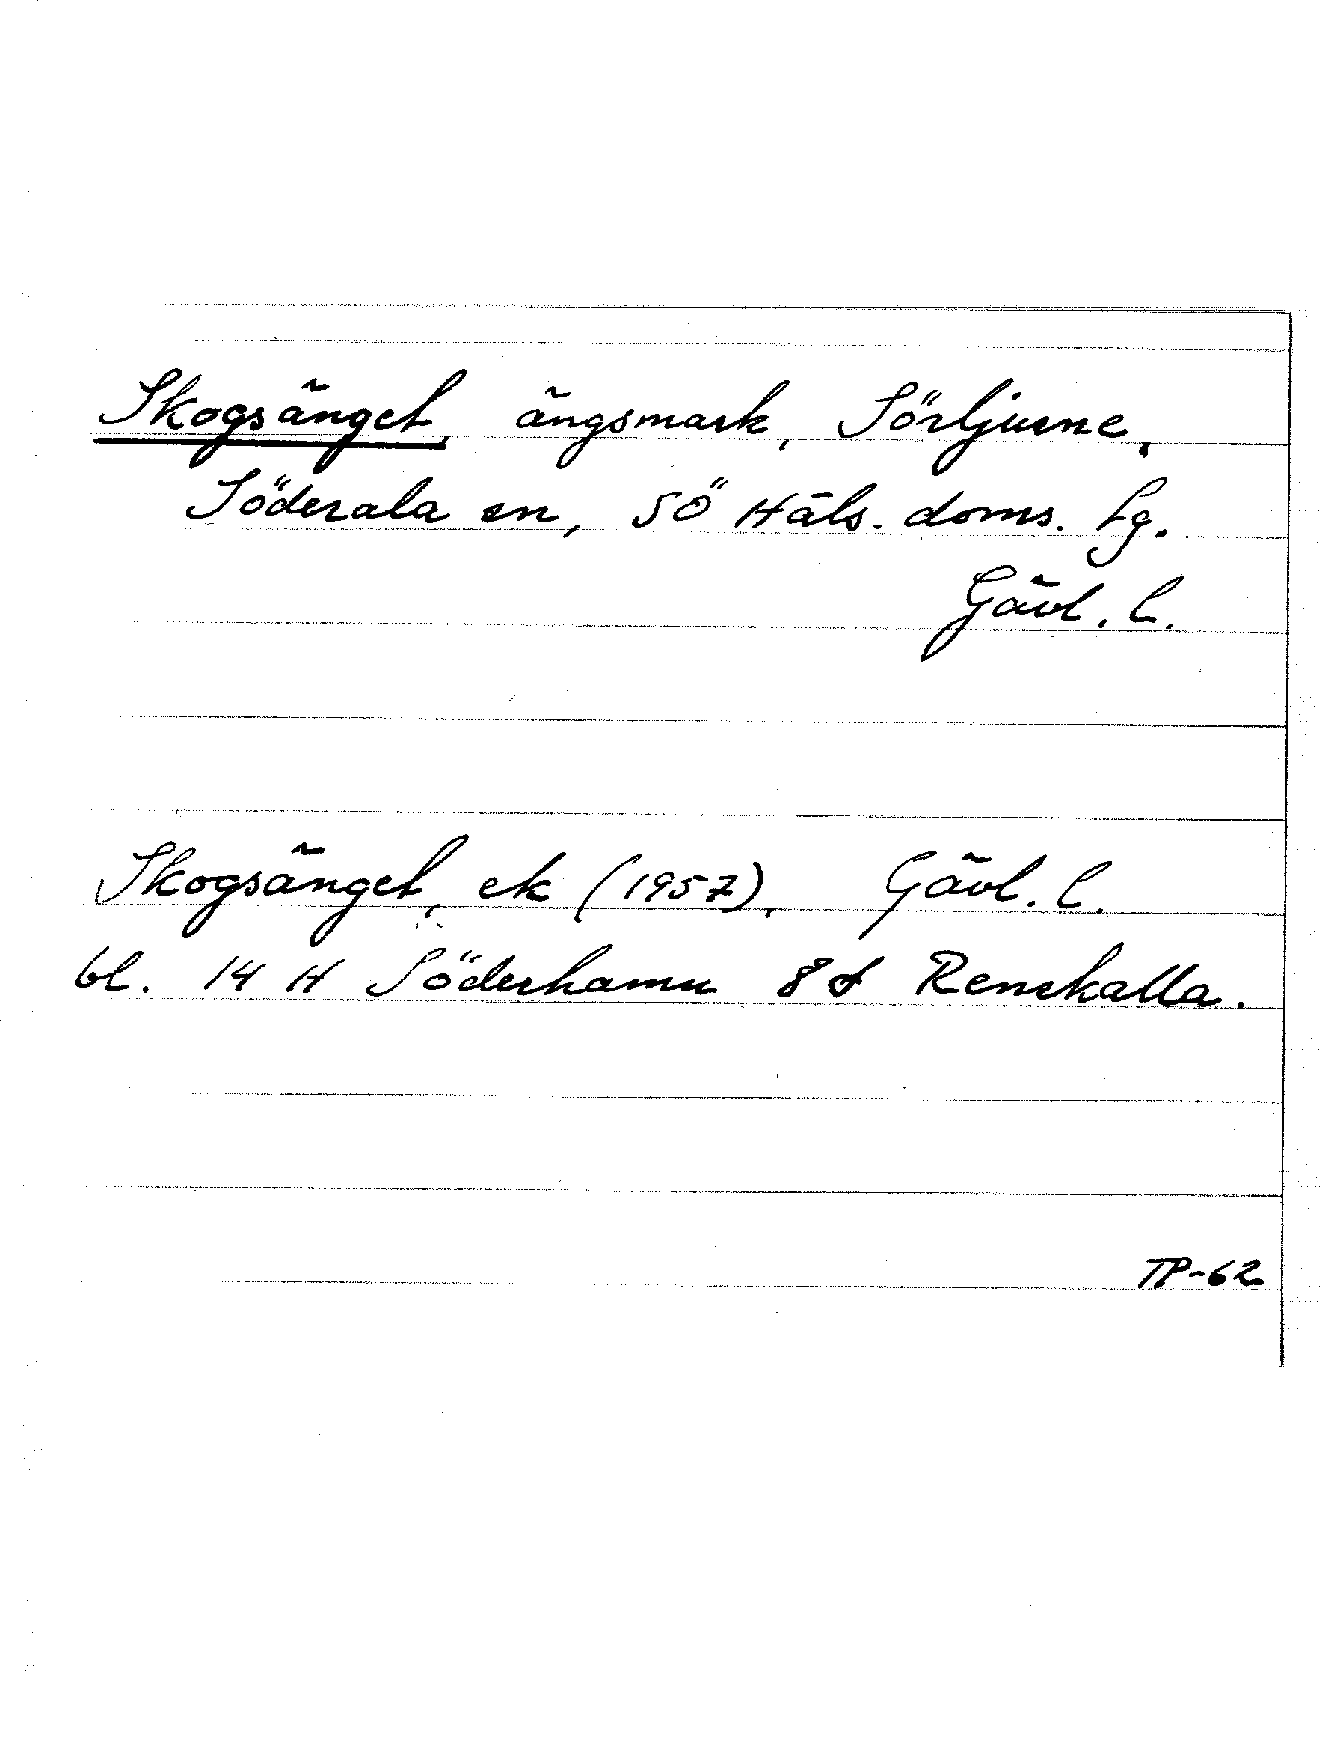 Skogsänget, ängsmark, Sörljusne,
Söderala sn, SÖ Häls. doms. Lg.
Gävl. l.
Skogsänget, ek (1957), Gävl. l.
bl. 14 H Söderhamn 8 d Renskalla.
TP-62